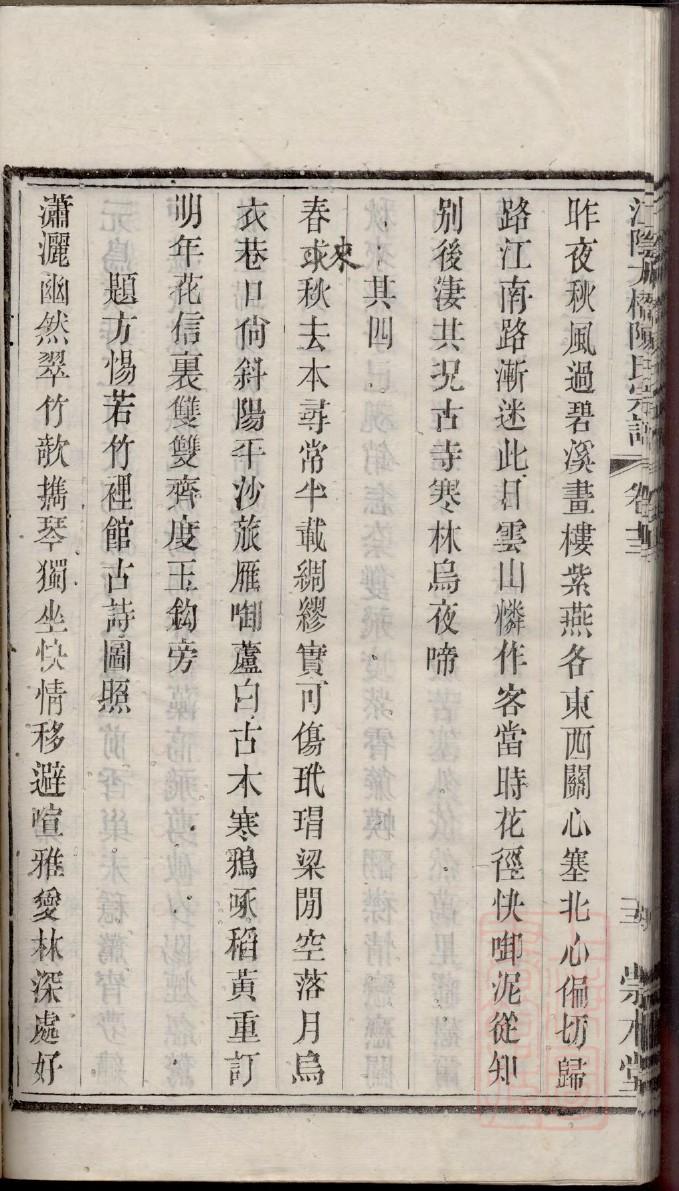 江陰方橋陳氏宗譜 卷 崇本堂
昨夜秋風過碧溪畫樓紫燕各東西關心塞北心偏切歸
路江南路漸迷此日雲山憐作客當時花徑快啣泥從知
別後淒共況古寺寒林烏夜啼
其四
春來秋去本尋常半載綢繆實可傷玳瑁梁閒空落月烏
衣巷口尙斜陽平沙旅雁啣蘆白古木寒鴉啄稻黃重訂
明年花信裏雙雙齊度玉鈎旁
題方惕若竹裡館古詩圖照
瀟灑幽然翠竹欹攜琴獨坐快情移避喧雅愛林深處好